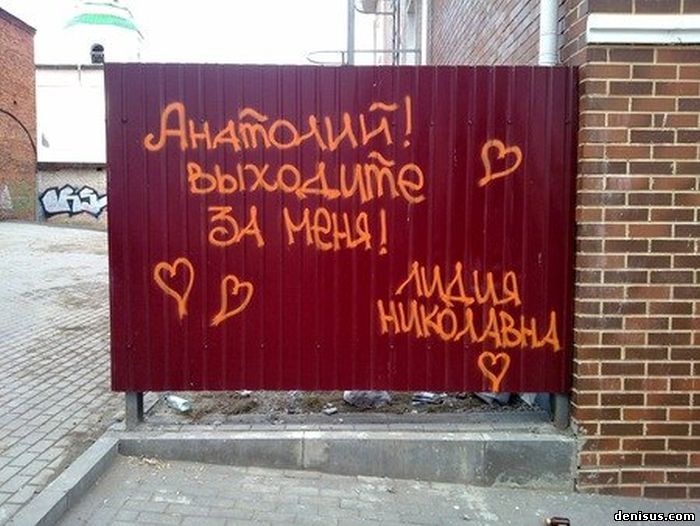 Анатолий!
Выходите
за меня!
Лидия
Николавна
denisus.com